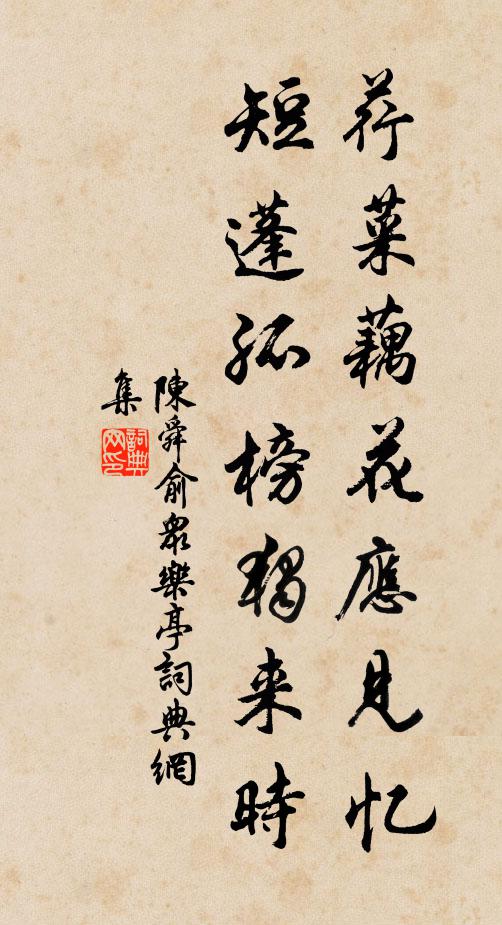 荇菜藕花應見忆
短蓬孤榜獨来時
陳舜俞衆樂亭詞典網
集
詞典網印